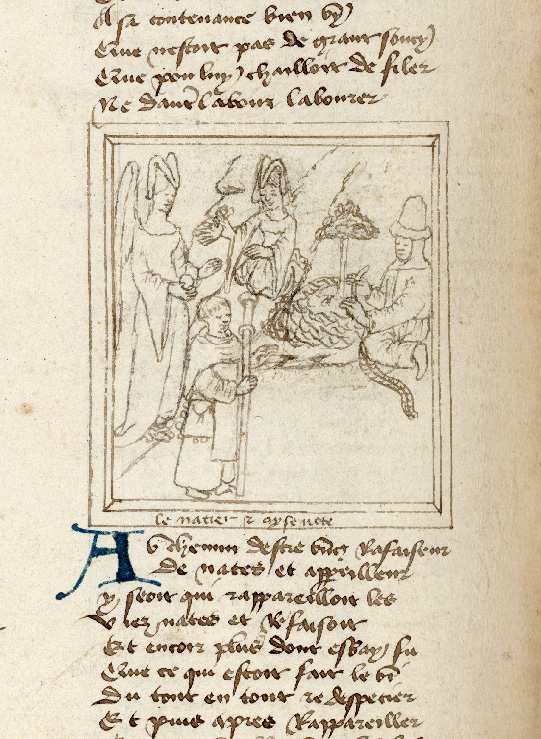 A sa contenance bien vy
Que nestoit pas de grant soucy
Que pou luy chailloit de filer
Ne dautre labour labourer
le natier & oyseuete
Au chemin destre vng Rafaiseur
De nates et appilleur
y seoit qui rappareilloit les
Viez nates et Refaisoit
Et encor plus dont esbay fu
Que ce qui estoit fait le vi
Du tout en tout redespecier
Et puis apres Rappareiller